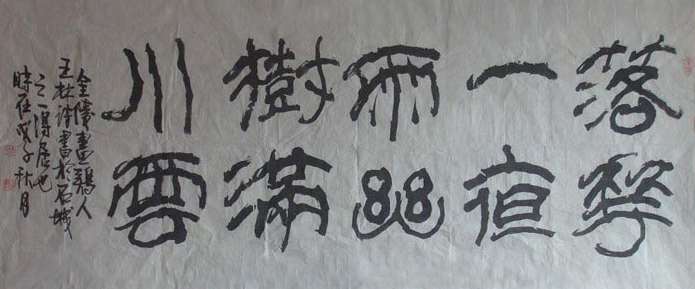 落花
一夜
雨幽
樹滿
川雲
金陵畫鷄人
王杜诗書於石城
之一得居也
時在戊子秋月